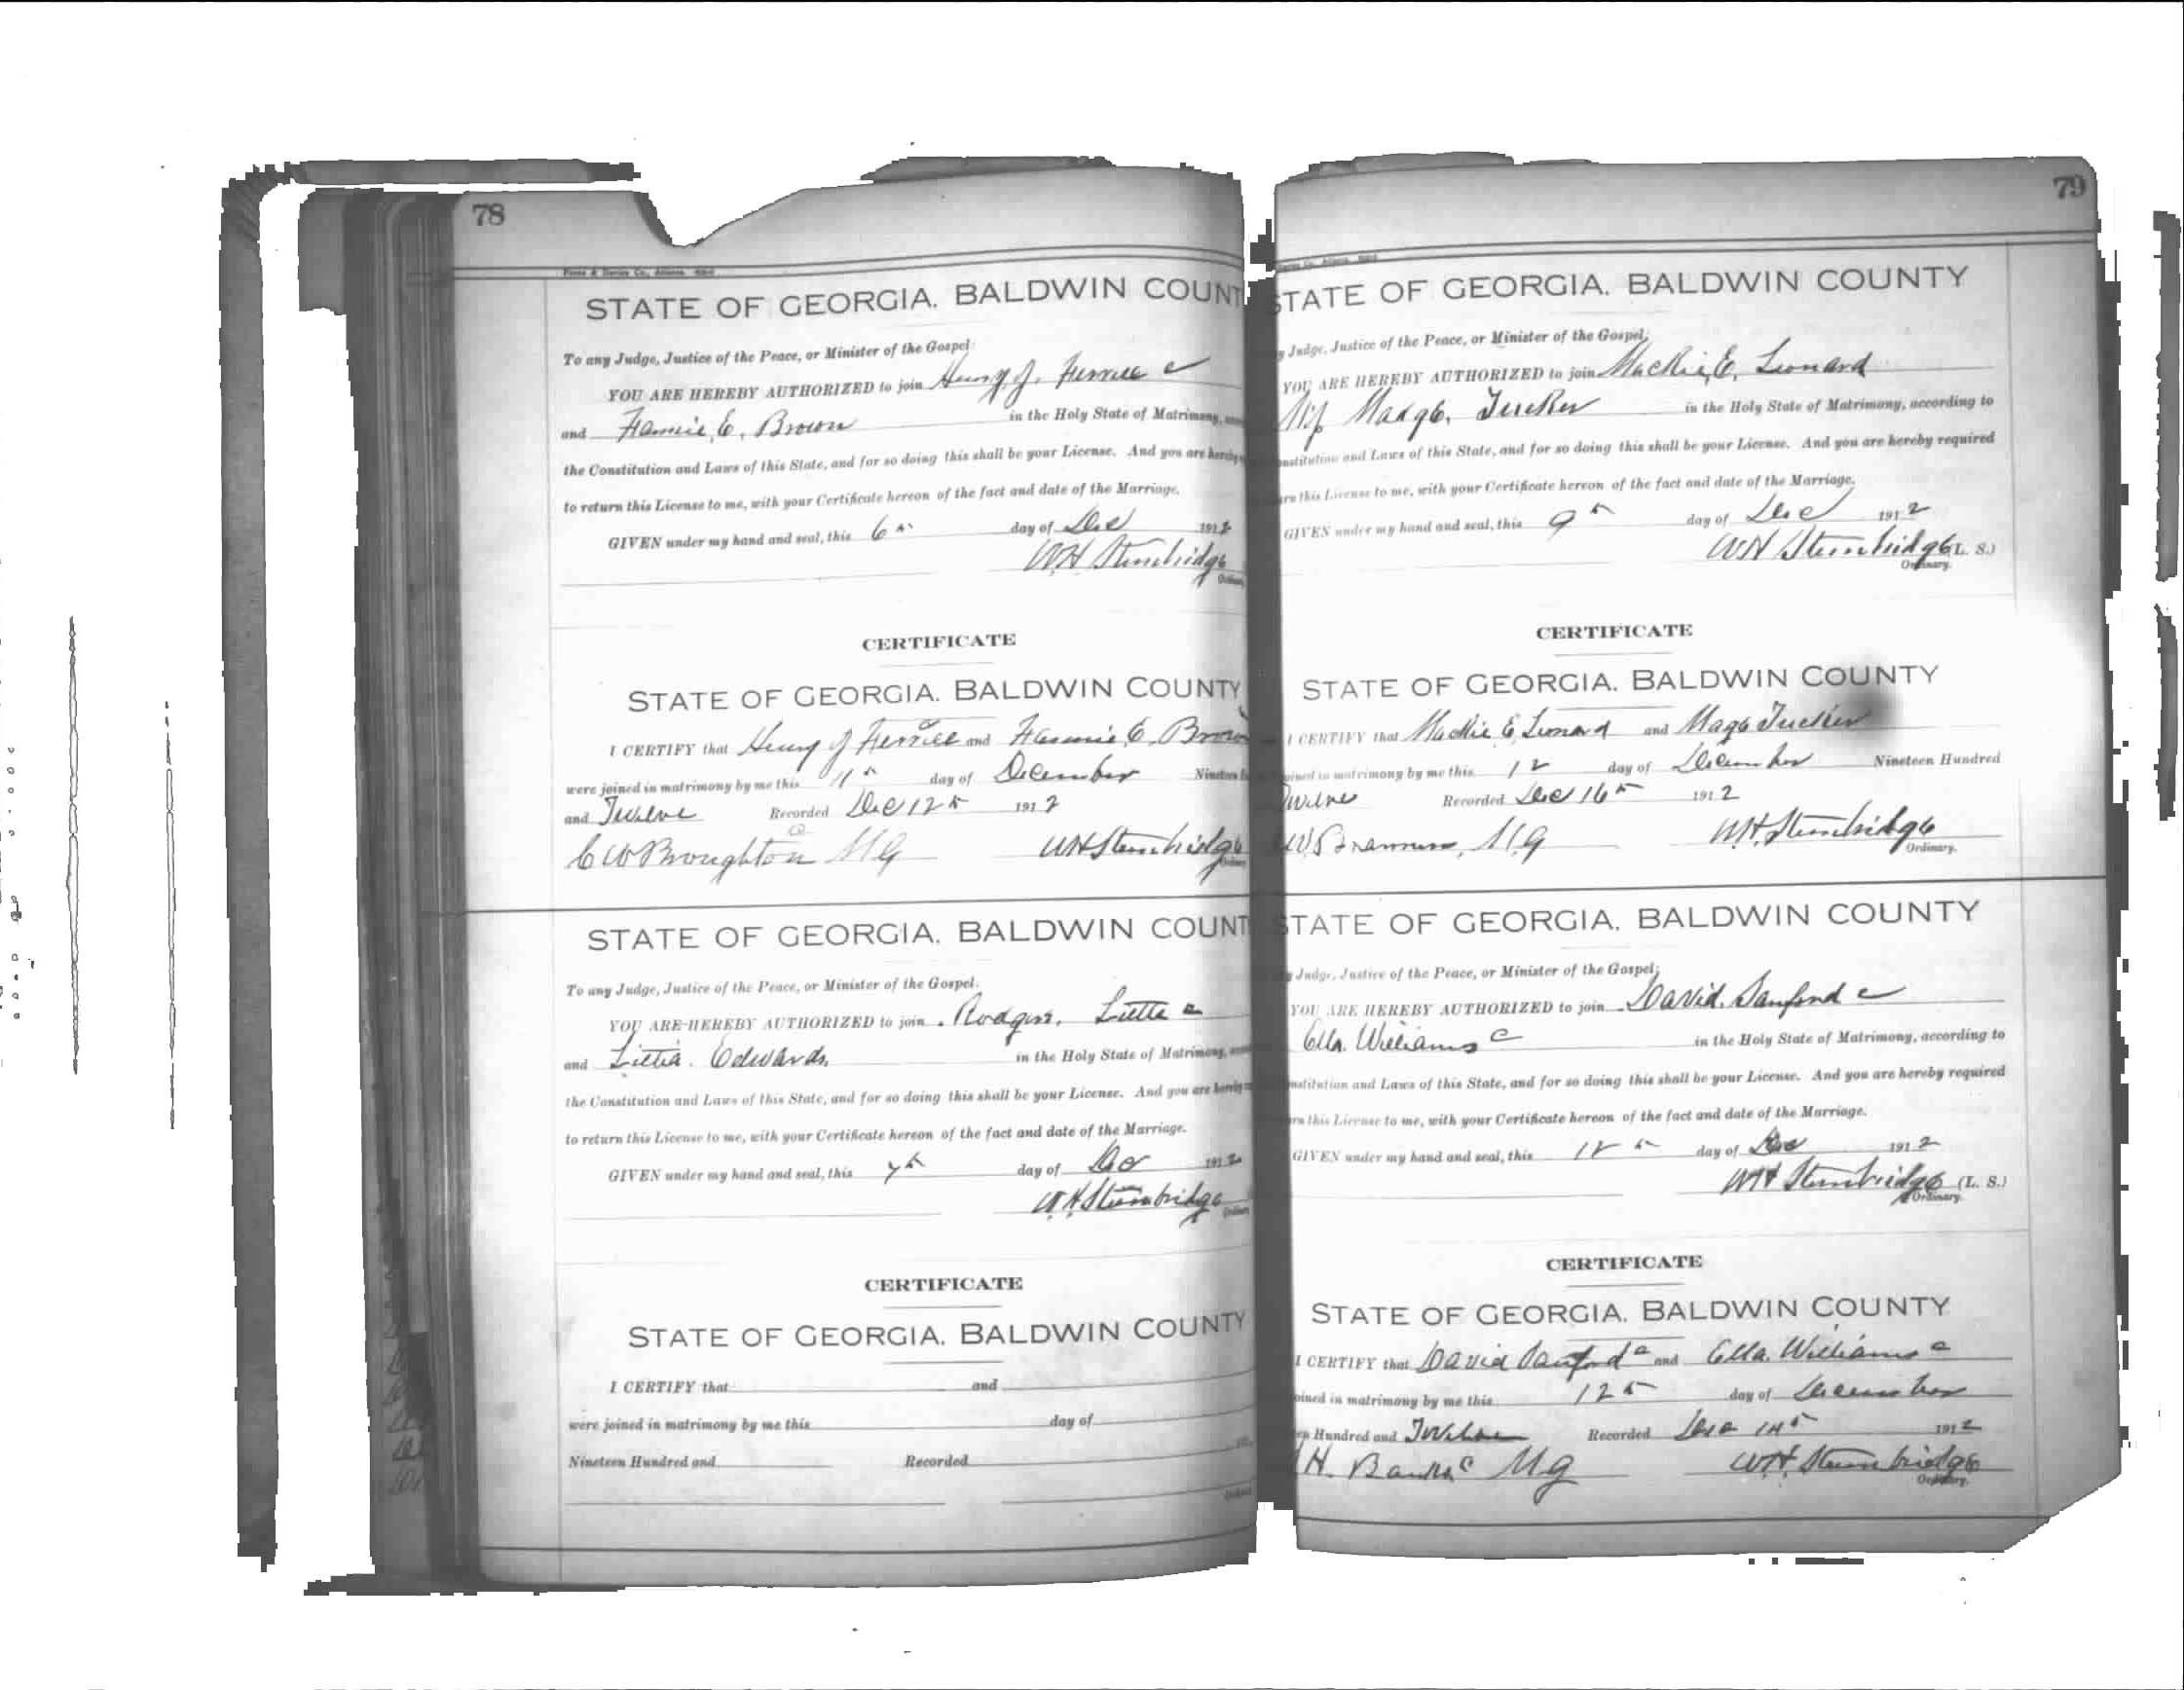 78
STATE OF GEORGIA. BALDWIN COUNT
To any Judge, Justice of the Peace, or Minister of the Gospel:
YOU ARE HEREBY AUTHORIZED to join Henry J. c
and Fannie E. Brown in the Holy State of Matrimony,
the Constitution and Laws of this State, and for so doing this shall be your License. And you are hereby
to return this License to me, with your Certificate hereon of the fact and date of the Marriage.
GIVEN under my hand and seal, this 6th day of Dec 1912
WH Stembridge
CERTIFICATE
STATE OF GEORGIA. BALDWIN COUNTY
I CERTIFY that Henry J and Fannie E. Brown
were joined in matrimony by me this 11th day of December Nineteen
and Twelve Recorded Dec 12th 1912
C W Broughton MG WH Stembridge
STATE OF GEORGIA. BALDWIN COUNT
To any Judge, Justice of the Peace, or Minister of the Gospel.
YOU ARE HEREBY AUTHORIZED to join Rodgers. c
and Edwards in the Holy State of Matrimony,
the Constitution and Laws of this State, and for so doing this shall be your License. And you are hereby
to return this License to me, with your Certificate hereon of the fact and date of the Marriage.
GIVEN under my hand and seal, this 7th day of Dec 1912
W.H. Stembridge
CERTIFICATE
STATE OF GEORGIA. BALDWIN COUNTY
I CERTIFY that and
were joined in matrimony by me this day of
Nineteen Hundred and Recorded
79
STATE OF GEORGIA. BALDWIN COUNTY
Judge, Justice of the Peace, or Minister of the Gospel;
YOU ARE HEREBY AUTHORIZED to join Mackie E. Leonard
Tucker in the Holy State of Matrimony, according to
onstitution and Laws of this State, and for so doing this shall be your License. And you are hereby required
urn this License to me, with your Certificate hereon of the fact and date of the Marriage.
GIVEN under my hand and seal, this 9th day of Dec 1912
WH Stembridge (L. S.)
Ordinary.
CERTIFICATE
STATE OF GEORGIA. BALDWIN COUNTY
I CERTIFY that Mackie E Leonard and Tucker
oined in matrimony by me this 12 day of December Nineteen Hundred
Twelve Recorded Dec 16th 1912
M.G W.H. Stembridge
Ordinary.
STATE OF GEORGIA. BALDWIN COUNTY
Judge, Justice of the Peace, or Minister of the Gospel;
YOU ARE HEREBY AUTHORIZED to join David. Sanford c
Ella. Williams c in the Holy State of Matrimony, according to
onstitution and Laws of this State, and for so doing this shall be your License. And you are hereby required
urn this License to me, with your Certificate hereon of the fact and date of the Marriage.
GIVEN under my hand and seal, this 12th day of Dec 1912
WH Stembridge (L. S.)
Ordinary.
CERTIFICATE
STATE OF GEORGIA. BALDWIN COUNTY
I CERTIFY that David Sanford c and Ella. Williams c
oined in matrimony by me this 12th day of December
en Hundred and Twelve Recorded Dec 14th 1912
H. Banks c MG WH Stembridge
Ordinary.